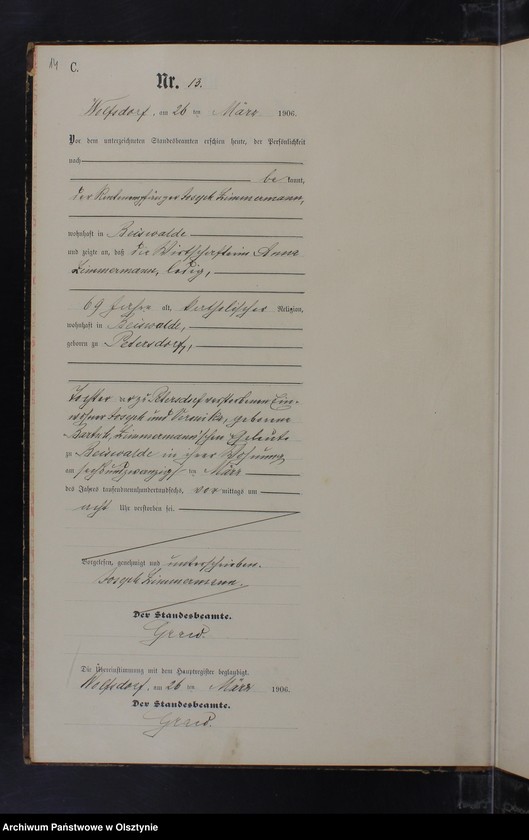 14 C.
Nr. 13.
Wolfsdorf, am 26 ten März 1906.
Vor dem unterzeichneten Standesbeamten erschien heute, der Persönlichkeit
nach
bekannt,
der Rentenempfänger Joseph Zimmermann,
wohnhaft in Beiswalde
und zeigte an, daß die Wirtschafterin Anna
Zimmermann, ledig,
69 Jahre alt, katholischer Religion,
wohnhaft in Beiswalde,
geboren zu Petersdorf,
Tochter der zu Petersdorf verstorbenen Ein-
wohner Joseph und Veronika, geborene
Zimmermann'schen Eheleute
zu Beiswalde in ihrer Wohnung
am sechsundzwanzigsten März
des Jahres tausendneunhundertundsechs, vormittags um
acht Uhr verstorben sei.
Vorgelesen, genehmigt und unterschrieben.
Joseph Zimmermann.
Der Standesbeamte.
Die Übereinstimmung mit dem Hauptregister beglaubigt.
Wolfsdorf, am 26 ten März 1906.
Der Standesbeamte.
Archiwum Państwowe w Olsztynie